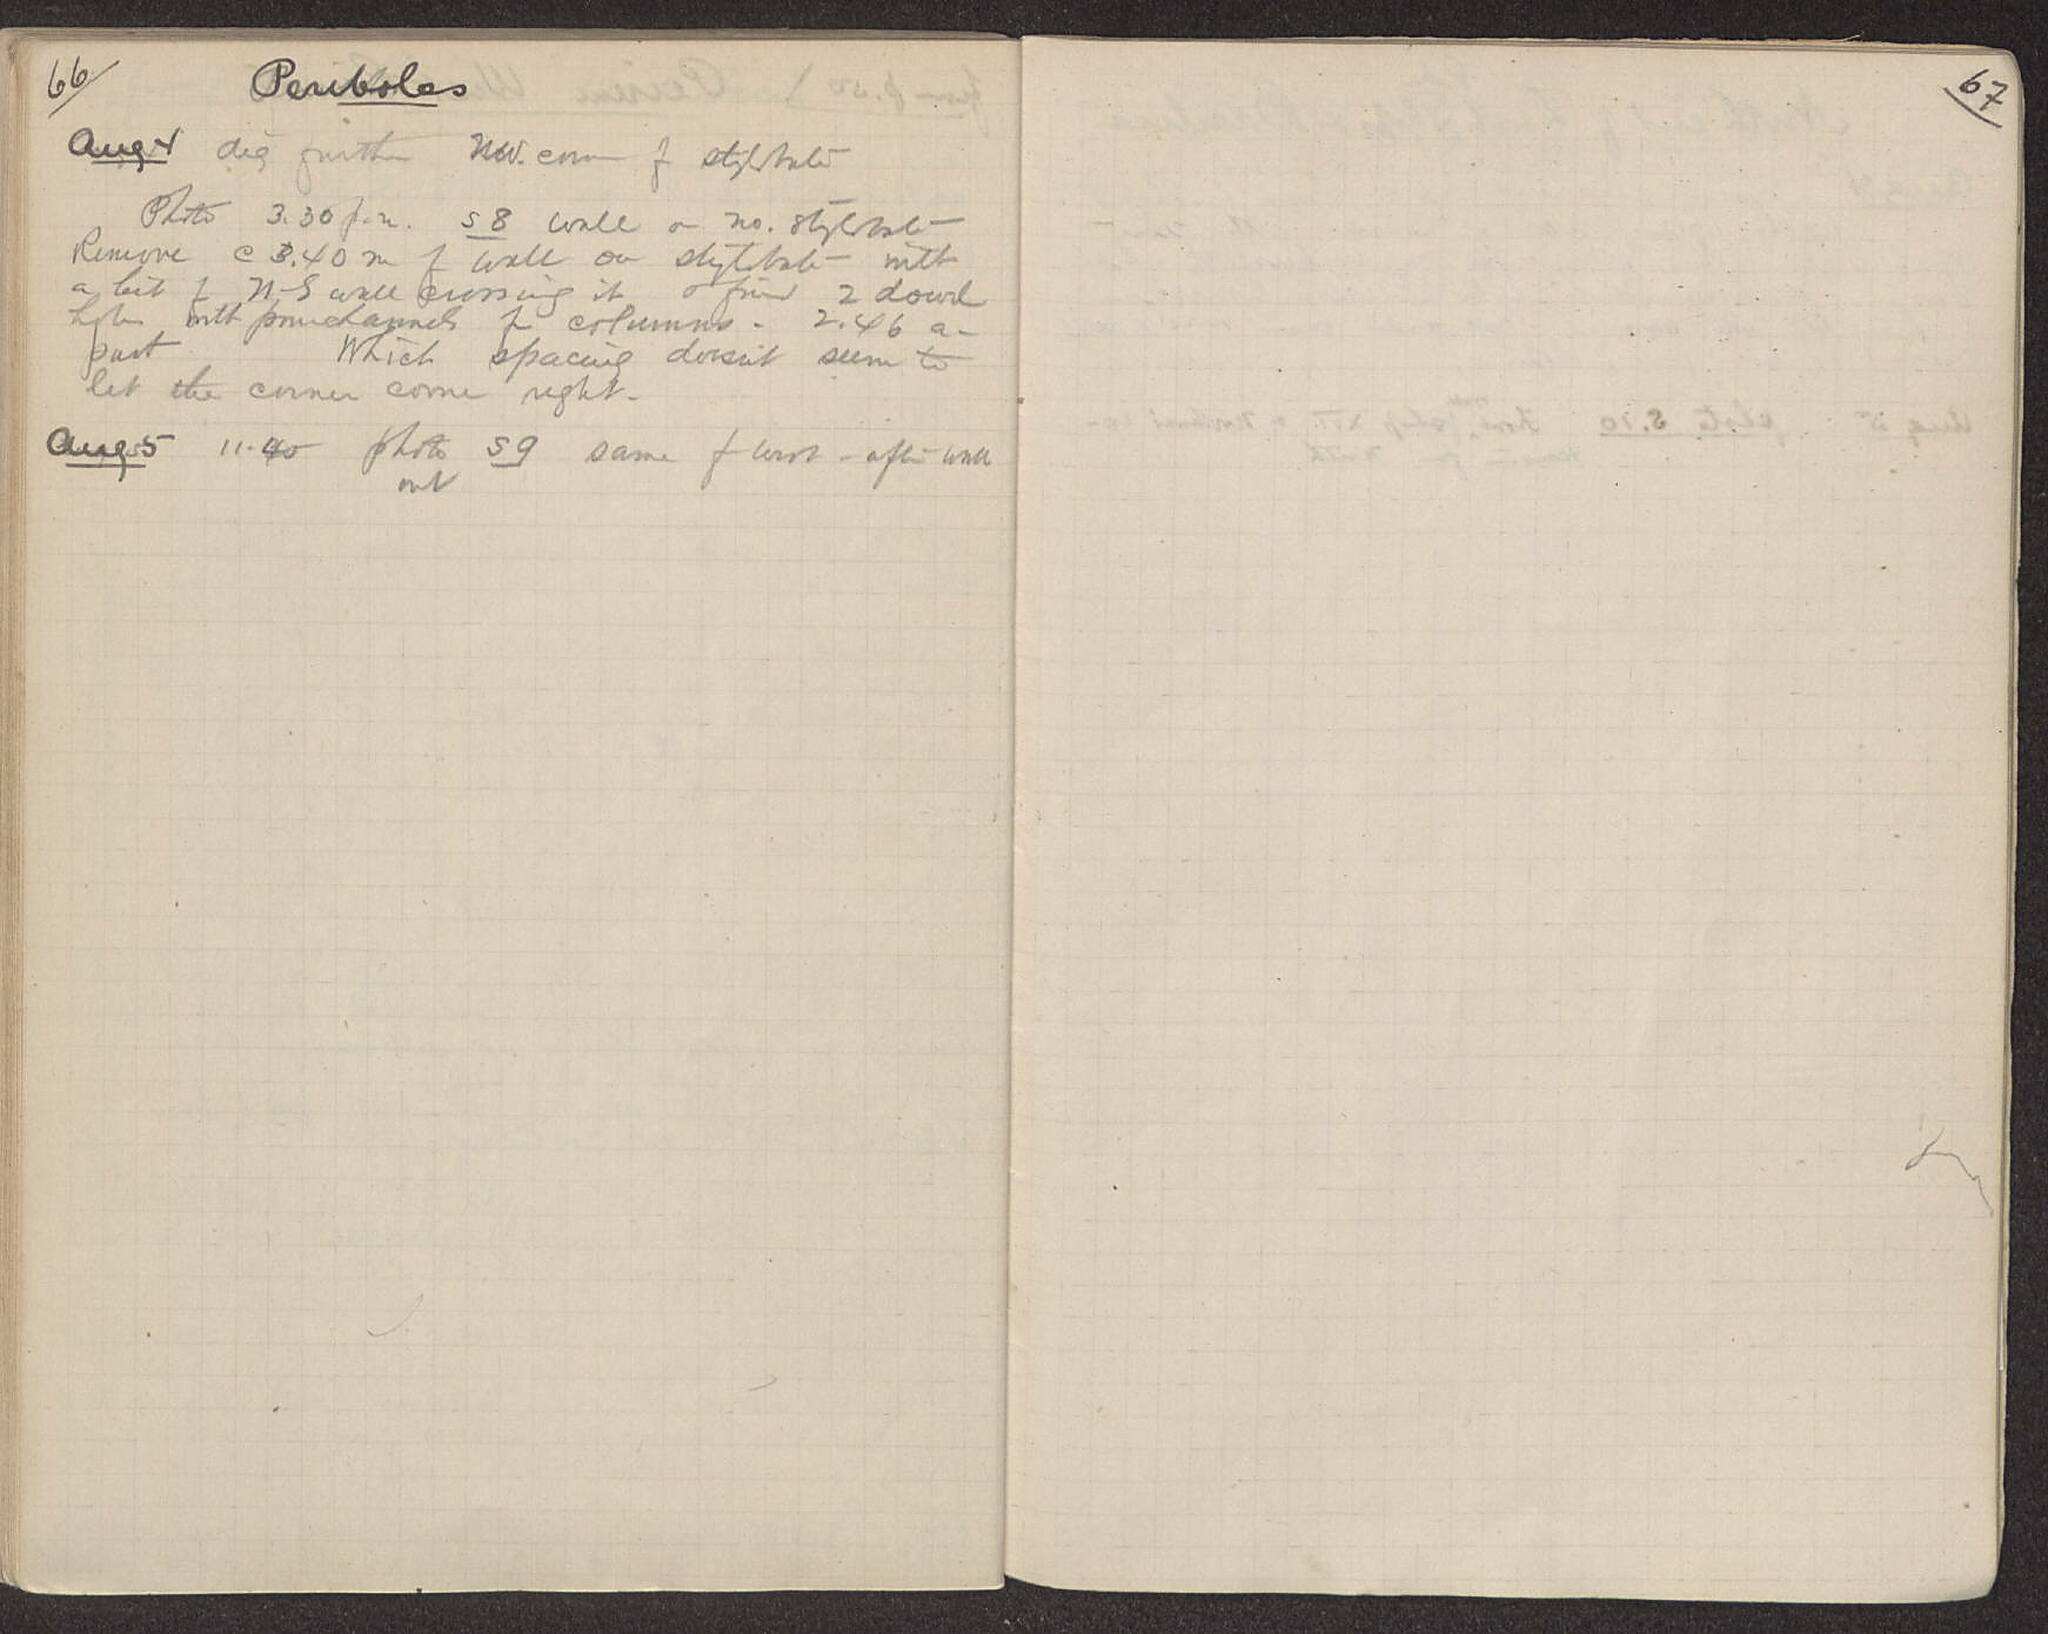 66
Peribolos
Aug 4 dig further NW. corner of stylobate
Photo 3.30 p.m. S8 wall on no. stylobate
Remove c 3.40 m of wall on stylobate with
a bit of N-S wall crossing it & find 2 dowel
holes with pour channels for columns - 2.46 a-
part Which spacing doesn't seem to
let the corner come right.
Aug 5 11.40 photo S9 same f - after wall
out
67